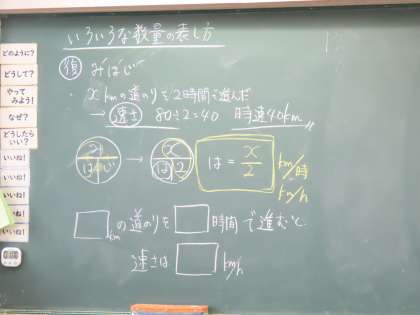 いろいろな数量の表し方
復 みはじ
・xkmの道のりを2時間で進んだ
→ 速さ 80÷2=40 時速40km
み は じ → x は 2 は = x/2 km/時
km/h
□kmの道のりを□時間で進むと
速さは□km/h
どのように?
どうして?
やってみよう!
なぜ?
どうしたらいい?
いいね!
いいね!
いいね!
いいね!
いいね!